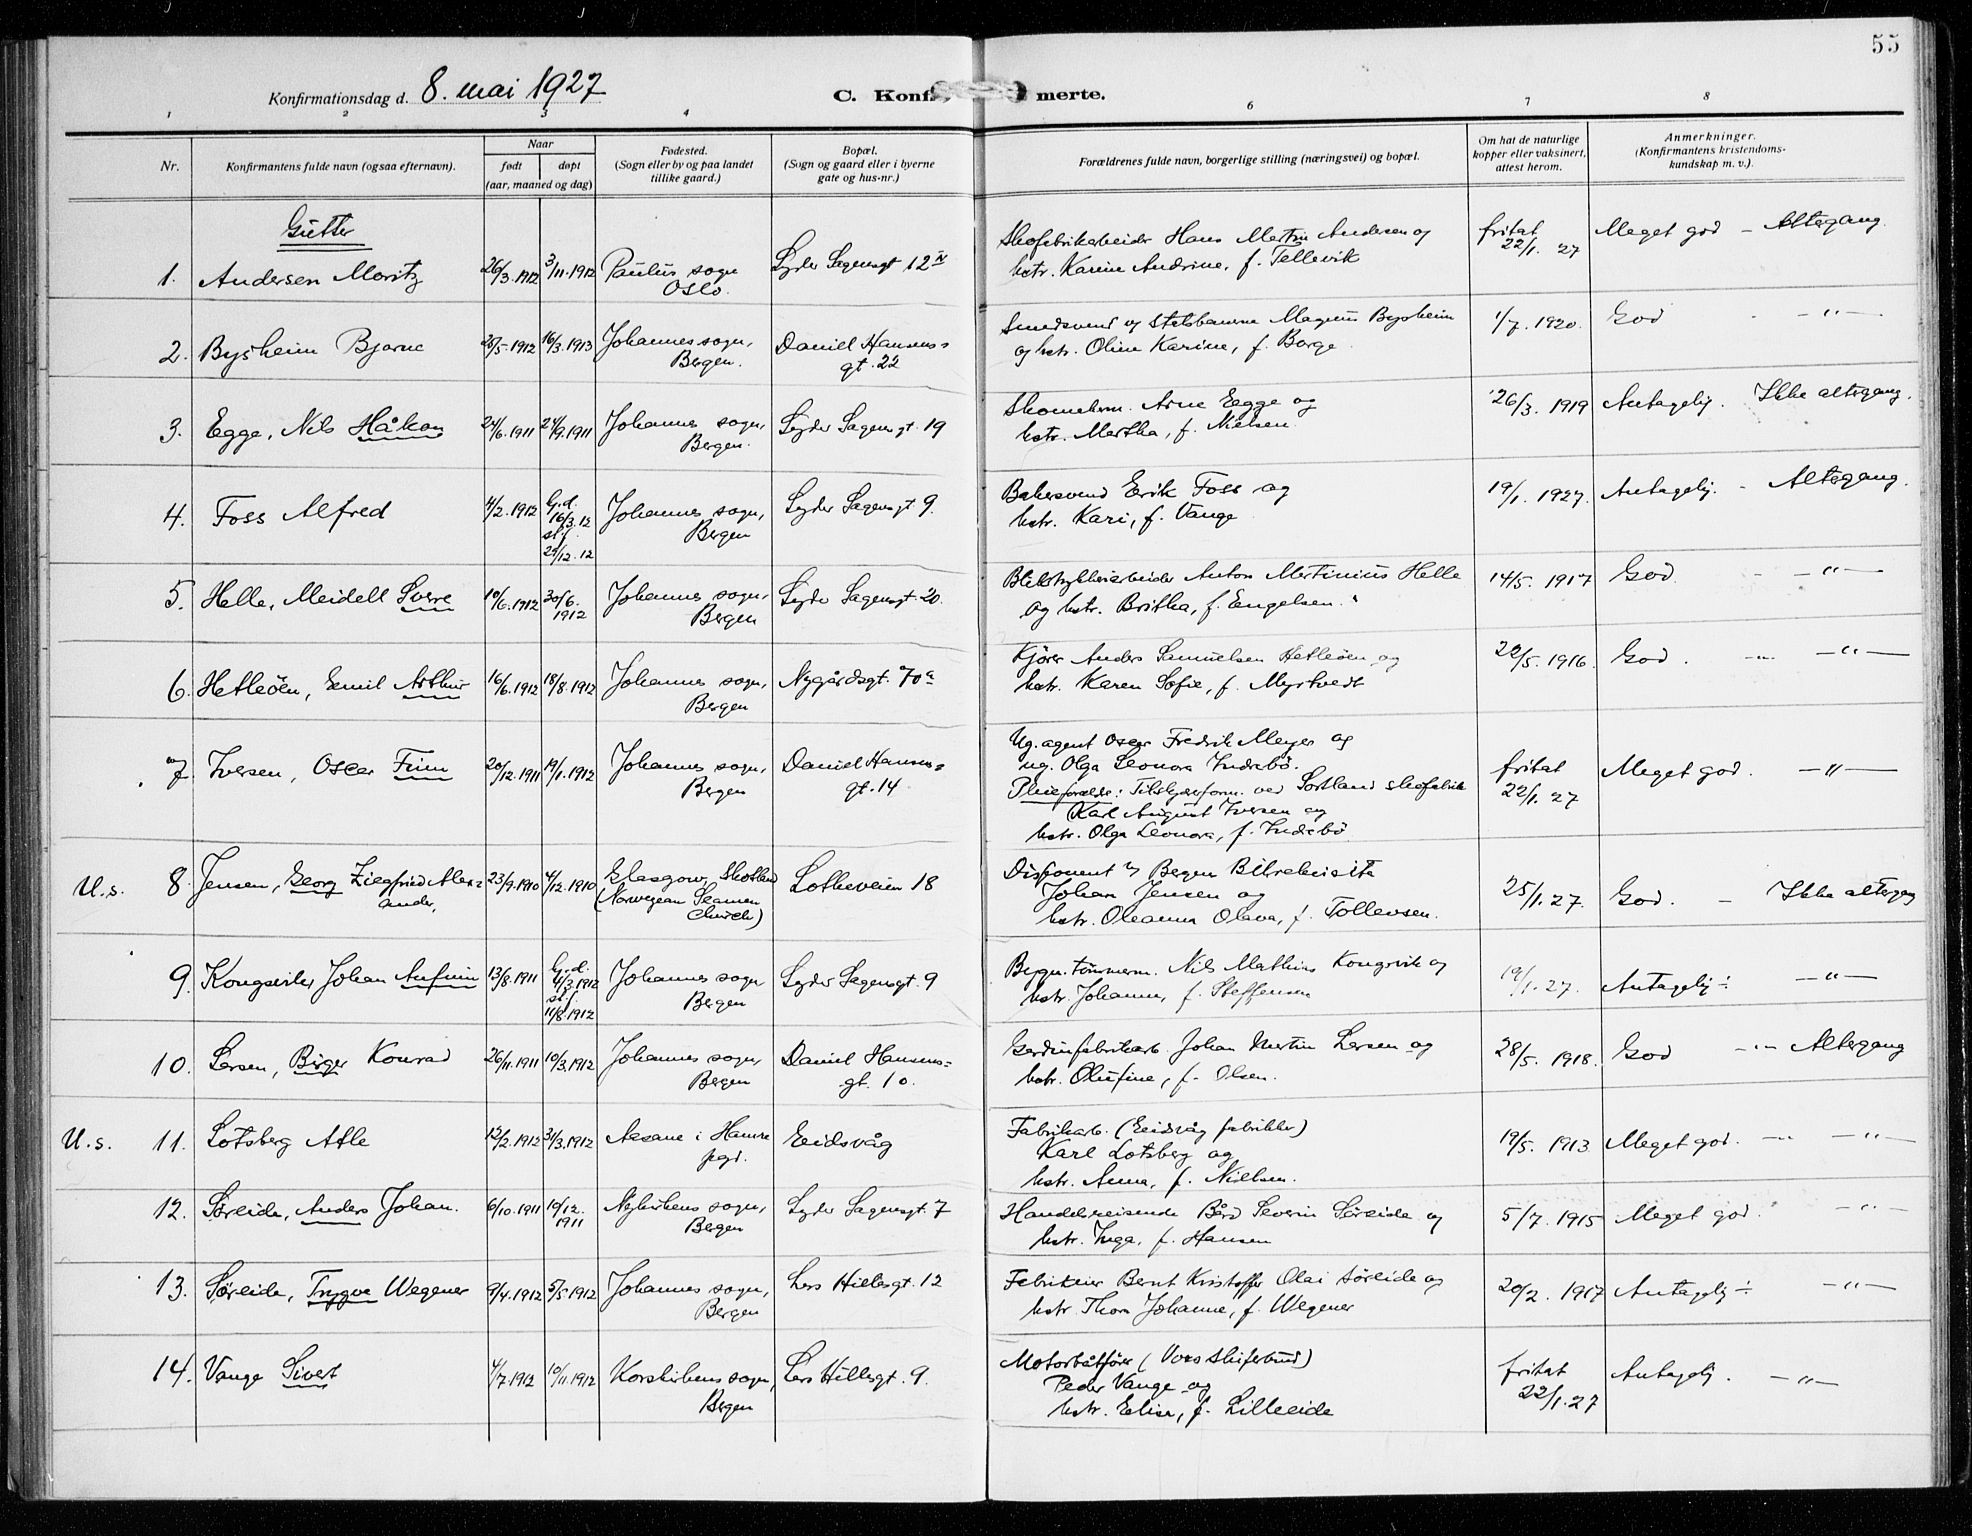 55
Konfirmationsdag d. 8. mai 1927
C. Konf merte.
1 2 3 4 6 7 8
Nr.
Konfirmantens fulde navn (ogsaa efternavn).
Naar
født
døpt
(aar, maaned og dag)
Fødested.
(Sogn eller by og paa landet
tillike gaard.)
Bopæl.
(Sogn og gaard eller i byerne
gate og hus-nr.)
Forældrenes fulde navn, borgerlige stilling (næringsvei) og bopæl.
Om hat de naturlige
kopper eller vaksinert,
attest herom.
Anmerkninger.
(Konfirmantens kristendoms-
kundskap m. v.).
Gutter
1. Andersen Moritz 26/3.1912 3/11.1912 Paulus sogn Oslo. Lyder Sagensgt 12 IV
Skofabrikarbeider Hans Martin Andersen og
hstr. Karine Andrine, f. Tellevik
fritat 22/1. 27 Meget god - Altergang.
2. Bysheim Bjarne 25/5.1912 16/3.1913 Johannes sogn, Bergen. Daniel Hansens= gt. 22
Smedsvend og Magnus Bysheim
og hstr. Oline Karine, f. Borge.
1/7. 1920. God - - " -
3. Egge, Nils Håkon 24/6.1911 24/9.1911 Johannes sogn, Bergen. Lyder Sagensgt. 19
Skomakerm. Arne Egge og
hstr. Martha, f. Nielsen.
26/3. 1919 Antagelig. Ikke altergang.
4. Foss Alfred 4/2.1912 Hj.d. 16/3.12 st.f. 25/12.12 Johannes sogn, Bergen Lyder Sagensgt 9.
Bakersvend Erik Foss og
hstr. Kari, f. Vange
19/1. 1927. Antagelig. - Altergang.
5. Helle, Meidell Sverre 10/6.1912 30/6. 1912 Johannes sogn, Bergen Lyder Sagensgt. 20.
Anton Martinius Helle
og hstr. Britha, f. Engelsen.
14/5. 1917 God. - - " -
6. Hetleöen, Emil Arthur 16/6.1912 18/8.1912 Johannes sogn, Bergen Nygårdsgt. 70a
Kjörer Anders Samuelsen Hetleöen og
hstr. Karen Sofie, f. Myrtvedt
22/5. 1916. God. - - " -
ug 7. Iversen, Oscar Finn 20/12.1911 19/1.1912 Johannes sogn, Bergen Daniel Hansens= gt. 14
Ug. agent Oscar Fredrik Meyer og
ug. Olga Leonora Indrebö.
Pleieforeldre: Tilskjærerform. ved Sortland skofabrik
Karl August Iversen og
hstr. Olga Leonora, f. Indrebö
fritat 22/1. 27 Meget god. - " -
U.s. 8. Jensen, Georg Ziegfried Alex= ander, 23/9.1910 4/12.1910 Glasgow, Skotland (Norwegian Seamen Church) Lotheveien 18
Disponent i Bergen
Johan Jensen og
hstr. Oleanna Olava, f. Tollevsen.
25/1. 27. God. - Ikke altergang
9. Kongsvik, Johan Anfinn 13/8.1911 Hj.d. 4/3.1912 st.f. 11/8.1912 Johannes sogn Bergen Lyder Sagensgt. 9
Bygn.tömmerm. Nils Mathias Kongsvik og
hstr. Johanna, f. Steffensen
19/1. 27. Antagelig ÷ - " -
10. Larsen, Birger Konrad 26/11.1911 10/3.1912 Johannes sogn, Bergen Daniel Hansens= gt. 10.
Gardinfabrikarb. Johan Martin Larsen og
hstr. Olufine, f. Olsen.
28/5. 1918. God - " - Altergang
U.s. 11. Lotsberg Atle 12/2.1912 31/3.1912 Aasane i Hamre pgd. Eidsvåg
Fabrikarb. (Eidsvåg fabrikker)
Karl Lotsberg og
hstr. Anna, f. Nielsen.
19/5. 1913 Meget god. - - " -
12. Søreide, Anders Johan. 6/10.1911 10/12. 1911 Nykirkens sogn, Bergen Lyder Sagensgt. 7
Handelsreisende Bård Severin Søreide og
hstr. Inga, f. Hansen
5/7. 1915 Meget god. - " -
13. Søreide, Trygve Wegener 9/4.1912 5/5.1912 Johannes sogn, Bergen Lars Hillesgt. 12
Fabrikeier Bernt Kristoffer Olai Søreide og
hstr. Thora Johanne, f. Wegener
20/2. 1917 Antagelig ÷ - " -
14. Vange Sivert 4/7.1912 10/11.1912 Korskirkens sogn, Bergen Lars Hillesgt. 9.
Motorbåtförer (Voss skiferbrud)
Peder Vange og
hstr. Elisa, f. Lilleeide
fritat 22/1.27 Antagelig. - " -